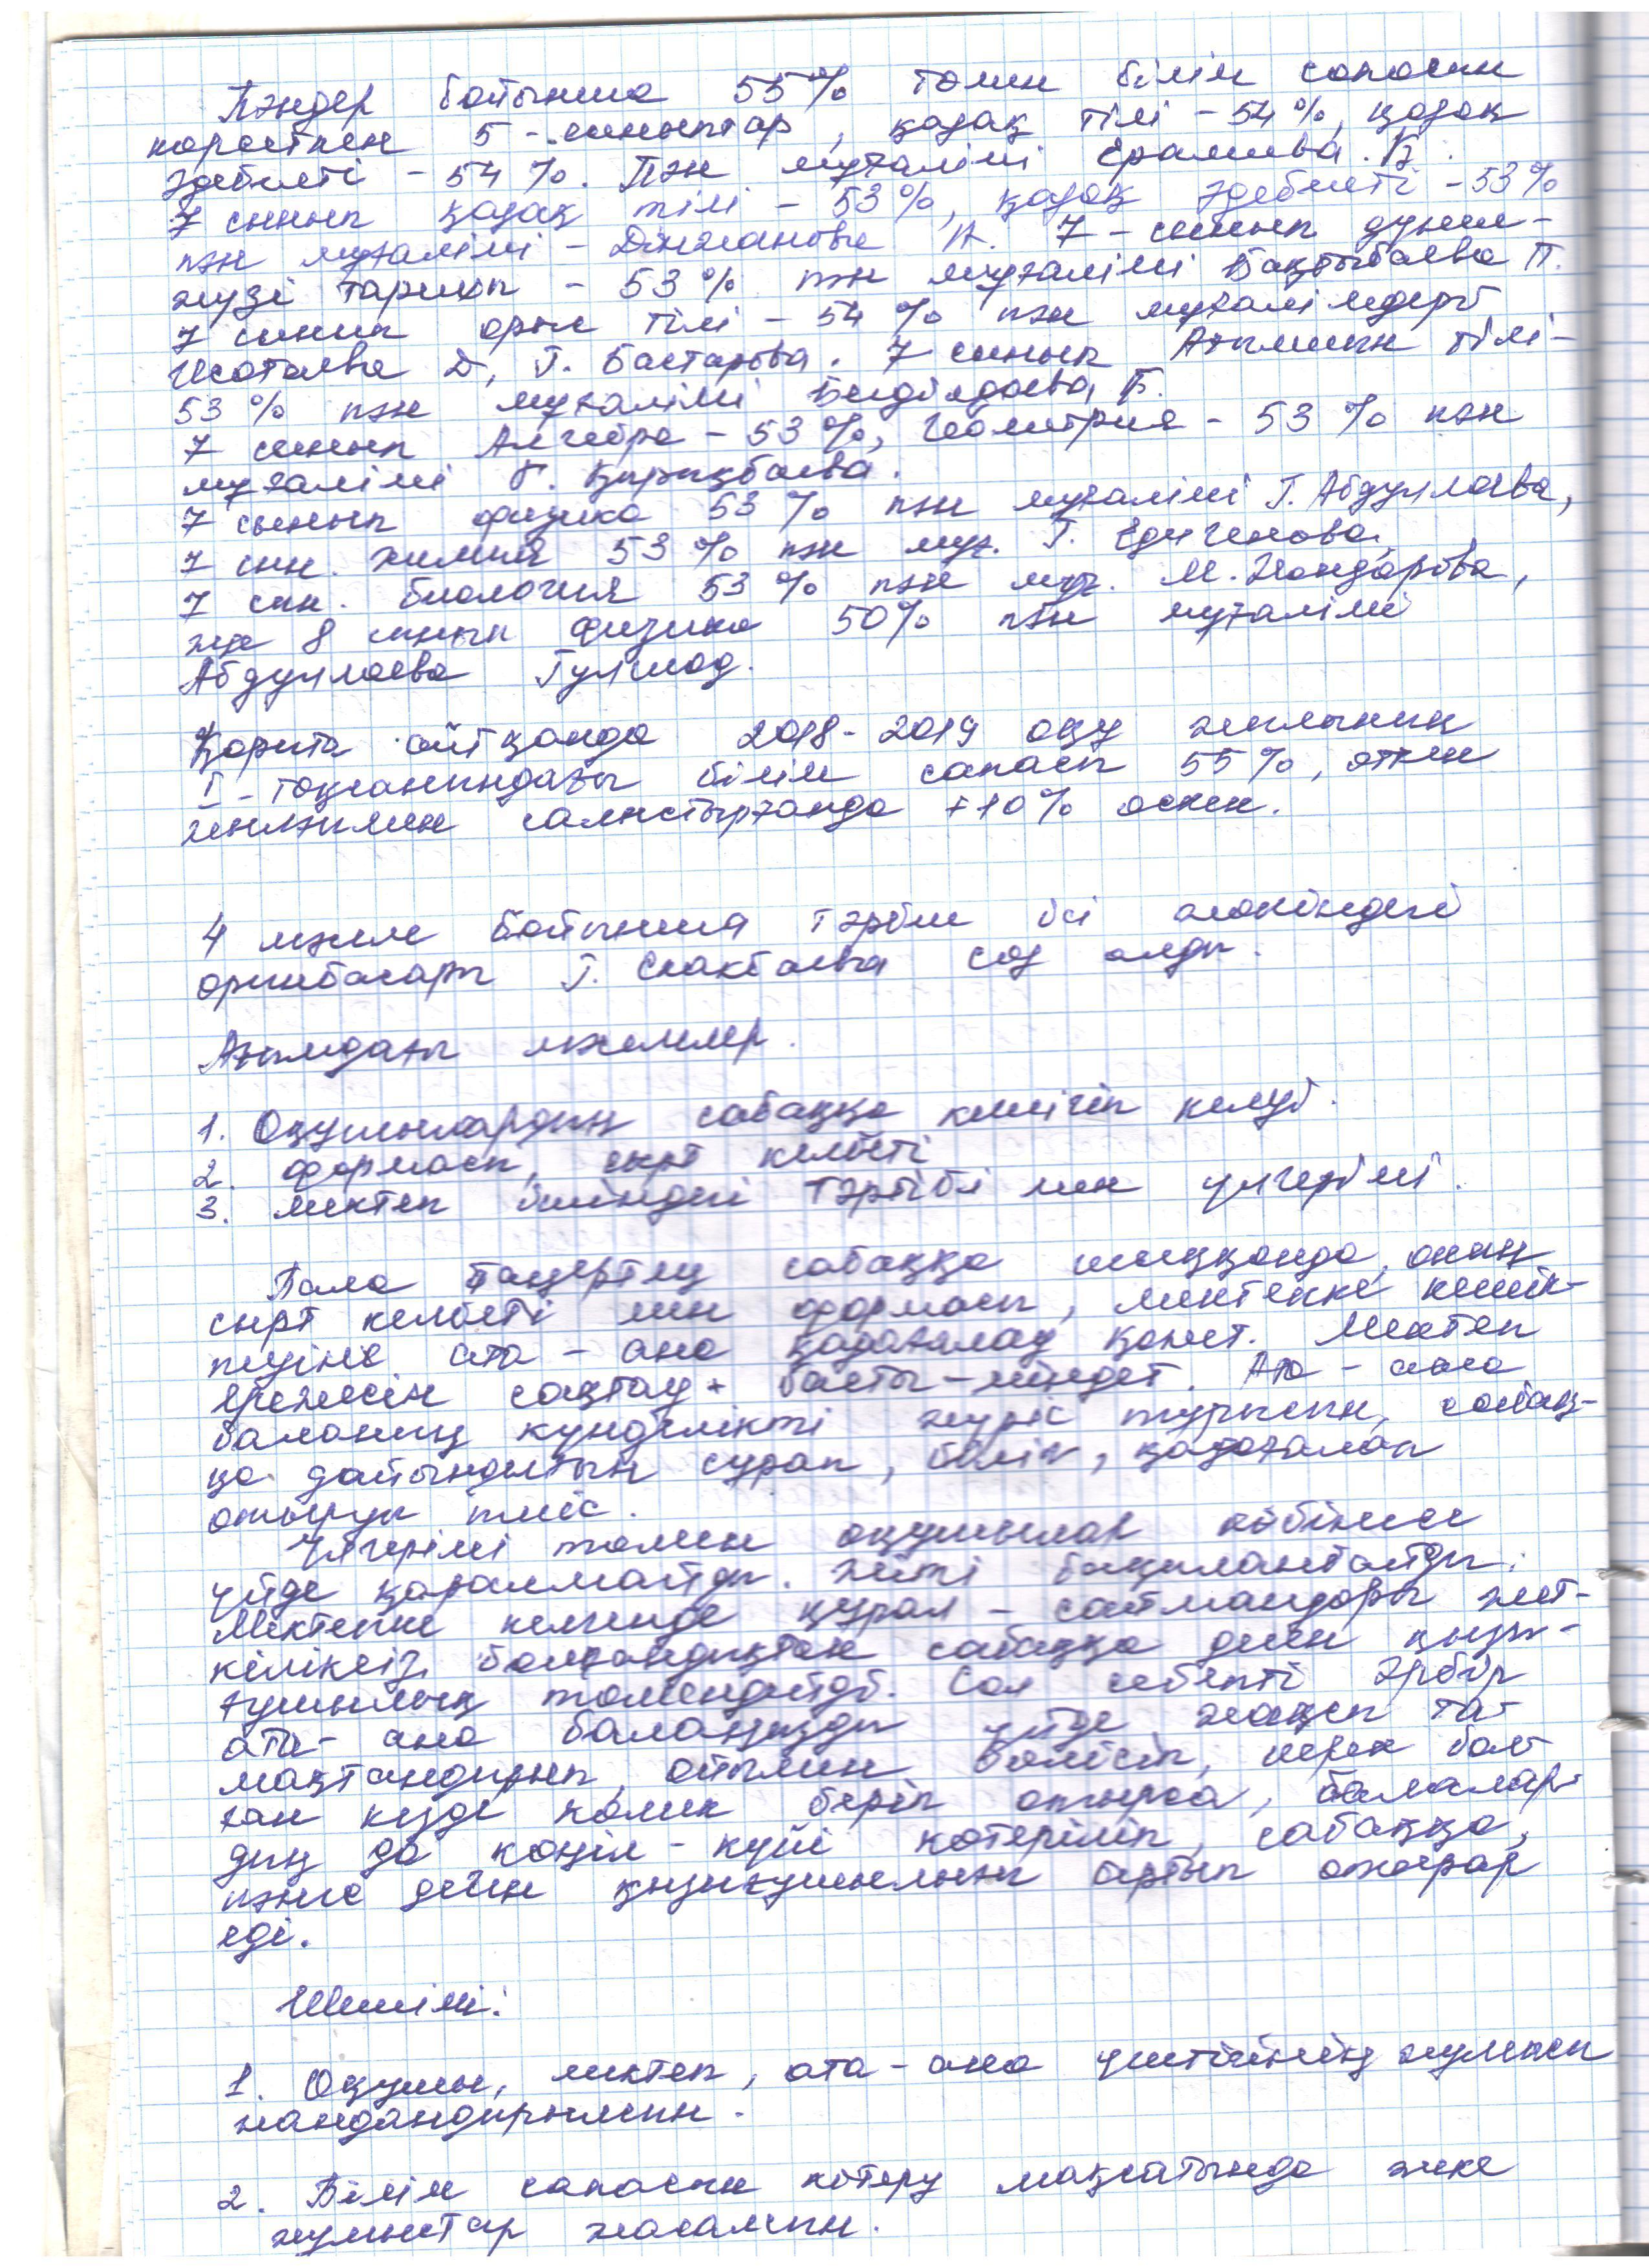 Пәндер бойынша 55% төмен білім сапасын
көрсеткен 5-сыныптар, қазақ тілі - 54%, қазақ
әдебиеті - 54%. Пән мұғалімі Ералиева. Б.
7 сынып қазақ тілі - 53%, қазақ әдебиеті - 53%
пән мұғалімі - Джианова А. 7-сынып дүние-
жүзі тарихы - 53% пән мұғалімі Бақтыбаева П.
7 сынып орыс тілі - 54% пән мұғалімдері
Исатаева Д, Г. Бастарова. 7 сынып Ағылшын тілі -
53% пән мұғалімі Б.
7 сынып Алгебра - 53%, Геометрия - 53% пән
мұғалімі Г. Қырықбаева.
7 сынып физика 53% пән мұғалімі Г. Абдуллаева,
7 сын. химия 53% пән мұғ. Г. Едигенова,
7 сын. биология 53% пән мұғ. М. Жондарова,
және 8 сынып физика 50% пән мұғалімі
Абдуллаева
Қорыта айтқанда 2018-2019 оқу жылының
I-тоқсанындағы білім сапасы 55%, өткен
жылғымен салыстырғанда +10% өскен.
4 мәселе бойынша тәрбие ісі жөніндегі
орынбасары Г. сөз алды.
Ағымдағы мәселелер.
1. Оқушылардың сабаққа кешігіп келуі.
2. формасы, сырт келбеті
3. мектеп ішіндегі тәртібі мен үлгерімі.
Бала таңертең сабаққа шыққанда, оның
сырт келбеті мен формасы, мектепке кешік-
пеуіне ата-ана қадағалау қажет. Мектеп
ережесін сақтау басты-міндет. Ата-ана
баланың күнделікті жүріс тұрысын, сабақ-
қа дайындығын сұрап, біліп, қадағалап
отыруы тиіс.
Үлгерімі төмен оқушылар көбінесе
үйде қаралмайды. Жиі бақыланбайды.
Мектепке келгенде құрал-саймандары жет-
кіліксіз болғандықтан сабаққа деген қызы-
ғушылық төмендейді. Сол себепті әрбір
ата-ана балаңызды үйде жақсы та-
мақтандырып, ойымен бөлісіп, керек бол-
ған кезде көмек беріп отырса, балалар-
дың да көңіл-күйі көтеріліп, сабаққа,
пәнге деген қызығушылығы артып отырар
еді.
Шешімі:
1. Оқушы, мектеп, ата-ана үштігінің жұмысы
жандандырылсын.
2. Білім сапасын көтеру мақсатында жеке
жұмыстар жасалсын.